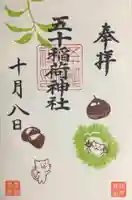 奉拝
五十稲荷神社
十月八日